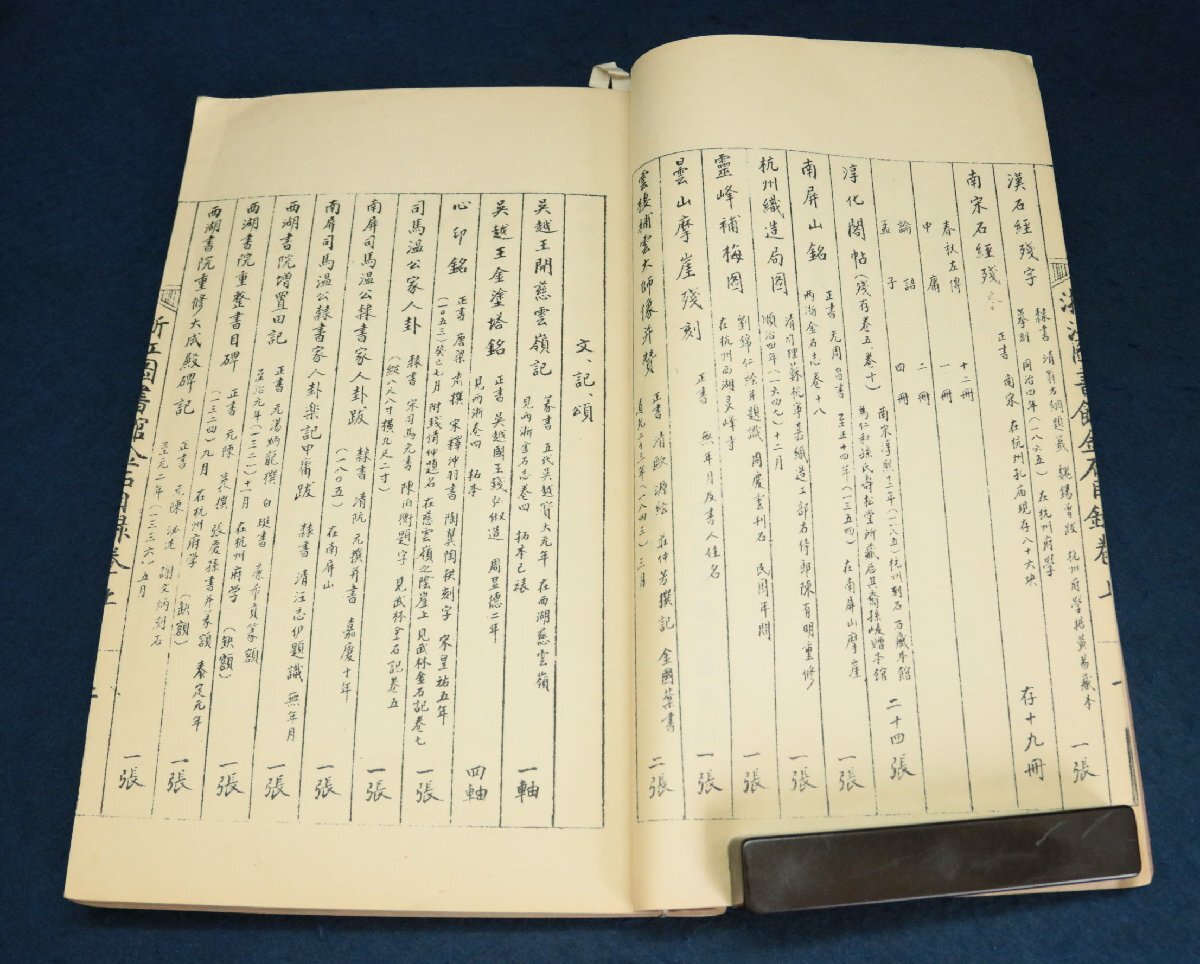 漢石經殘字 隸書 清翁方綱題籤 魏錫曾跋 杭州府學摭黃易藏本 一張
摹刻 同治四年(一八六五) 在杭州府學
南宋石經殘 正書 南宋 在杭州孔廟現存八十六塊 存十九冊
春秋左傳 十二冊
中庸 一冊
論語 二冊
孟子 四冊
淳化閣帖(殘存卷五、卷十) 南宋淳熙十二年(一一八五)杭州刻石 石藏本館 二十四張
為仁和孫氏壽松堂所藏后其裔孫峻贈本館
南屏山銘 正書 元周昌書 至正十四年(一三五四) 在南屏山摩崖 一張
兩浙金石志卷十八
杭州織造局圖 清司理蘇杭等嘉織造工部右侍郎陳有明重修 一張
順治四年(一六四七)十二月
靈峰補梅圖 劉錦仁繪并題識 周慶雲刊石 民國年間 一張
在杭州西湖灵峰寺
曇山摩崖殘刻 正書 無年月及書人佳名 一張
雲棲補雲大師像并贊 正書 清歐 源繪 莊仲芳撰記 金國棻書 二張
道光二十三年(一八四三)三月
浙江圖書館金石目錄卷上 一
文、記、頌
吳越王開慈雲嶺記 篆書 五代吳越寶大元年 在西湖慈雲嶺 一軸
見兩浙金石志卷四 拓本已裱
吳越王金塗塔銘 正書 吳越國王錢弘俶造 周显德二年 四軸
見兩浙卷四 拓本
心印銘 正書 唐梁肅撰 宋釋沖羽書 陶翼陶拱刻字 宋皇祐五年 一張
(一〇五三)癸巳七月 附錢信仲題名 在慈雲嶺之陰崖上 見武林金石記卷七
司馬溫公家人卦 隸書 宋司馬光書 陳伯衡題字 見武林金石記卷五 一張
(縱八八尺寸橫九尺二寸)
南屏司馬溫公隸書家人卦跋 隸書 清阮元撰并書 嘉慶十年 一張
(一八〇五) 在南屏山
南屏司馬溫公隸書家人卦樂記中庸跋 隸書 清汪志伊題識 無年月 一張
西湖書院增置田記 正書 元湯炳龍撰 白珽書 篆額 一張
至治元年(一三二一)十一月 在杭州府學 (缺額)
西湖書院重整書目碑 正書 元陳袤撰 張慶孫書并篆額 泰定元年 一張
(一三二四)九月 在杭州府學 (缺額)
西湖書院重修大成殿碑記 正書 元陳泌述 謝文炳刻石 一張
至元二年(一三三六)五月
浙江圖書館金石目錄卷上